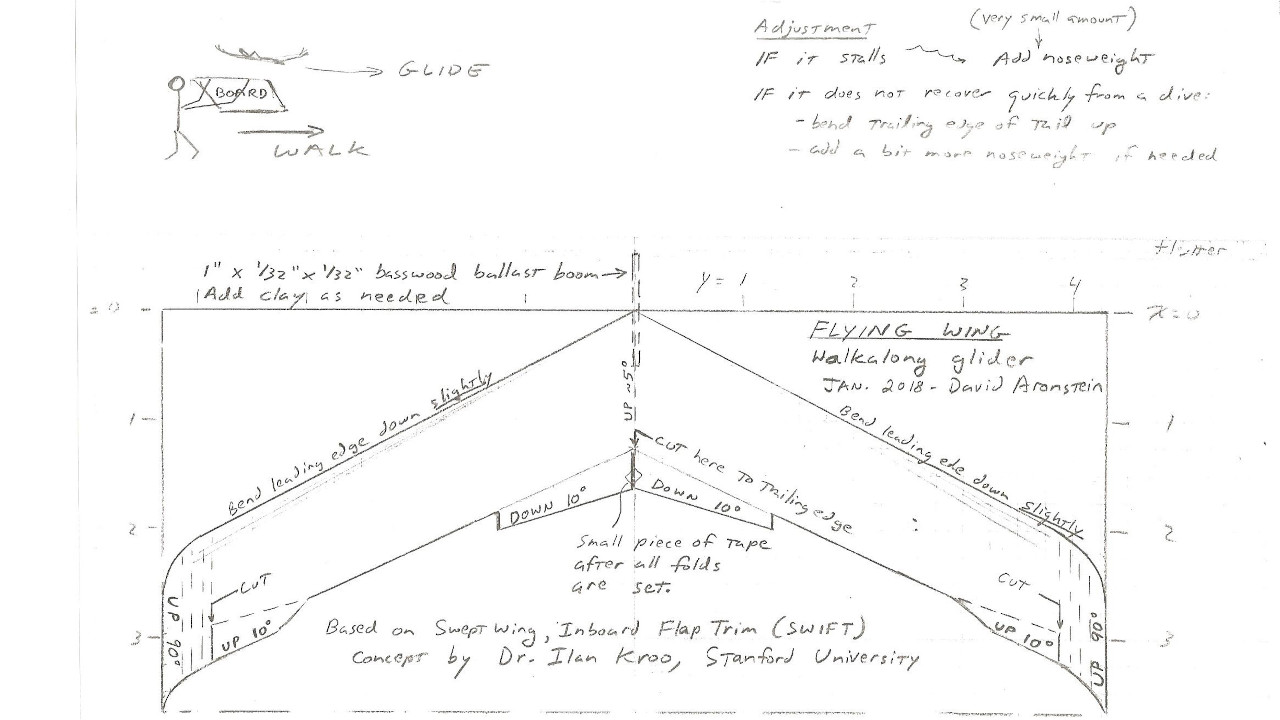 GLIDE
BOARD
WALK
Adjustment
(very small amount)
IF it stalls Add noseweight
IF it does not recover quickly from a dive:
- bend trailing edge of tail up
- add a bit more noseweight if needed
1" x 1/32" x 1/32" basswood ballast boom
Add clay as needed
y = 1 2 3 4
= 0
x = 0
FLYING WING
Walkalong glider
JAN. 2018 - David Aronstein
UP ~5°
Bend leading edge down slightly
Bend leading ede down slightly
1
1
CUT here to Tailing edge
DOWN 10°
DOWN 10°
2
2
Small piece of Tape
after all folds
are set.
CUT
CUT
UP 90°
UP 10°
UP 10°
UP 90°
3
3
Based on Swept Wing, Inboard Flap Trim (SWIFT)
Concept by Dr. Ilan Kroo, Stanford University